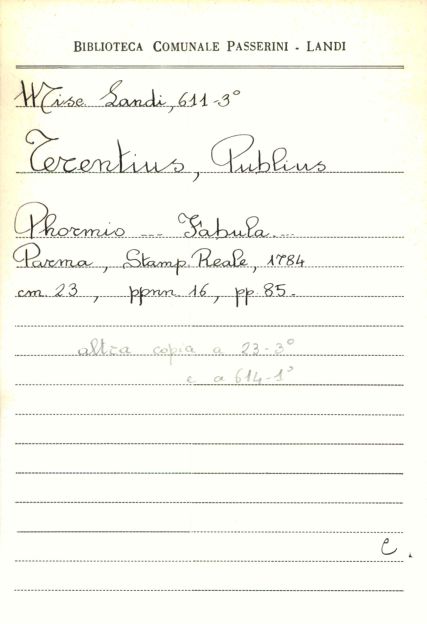 BIBLIOTECA COMUNALE PASSERINI - LANDI
Misc. Landi, 611-3°
Terentius, Publius
Phormio ... Fabula ...
Parma, Stamp. Reale, 1784
cm 23, ppnn. 16, pp. 85.
altra copia a 23-3°
e a 614-1°
C.